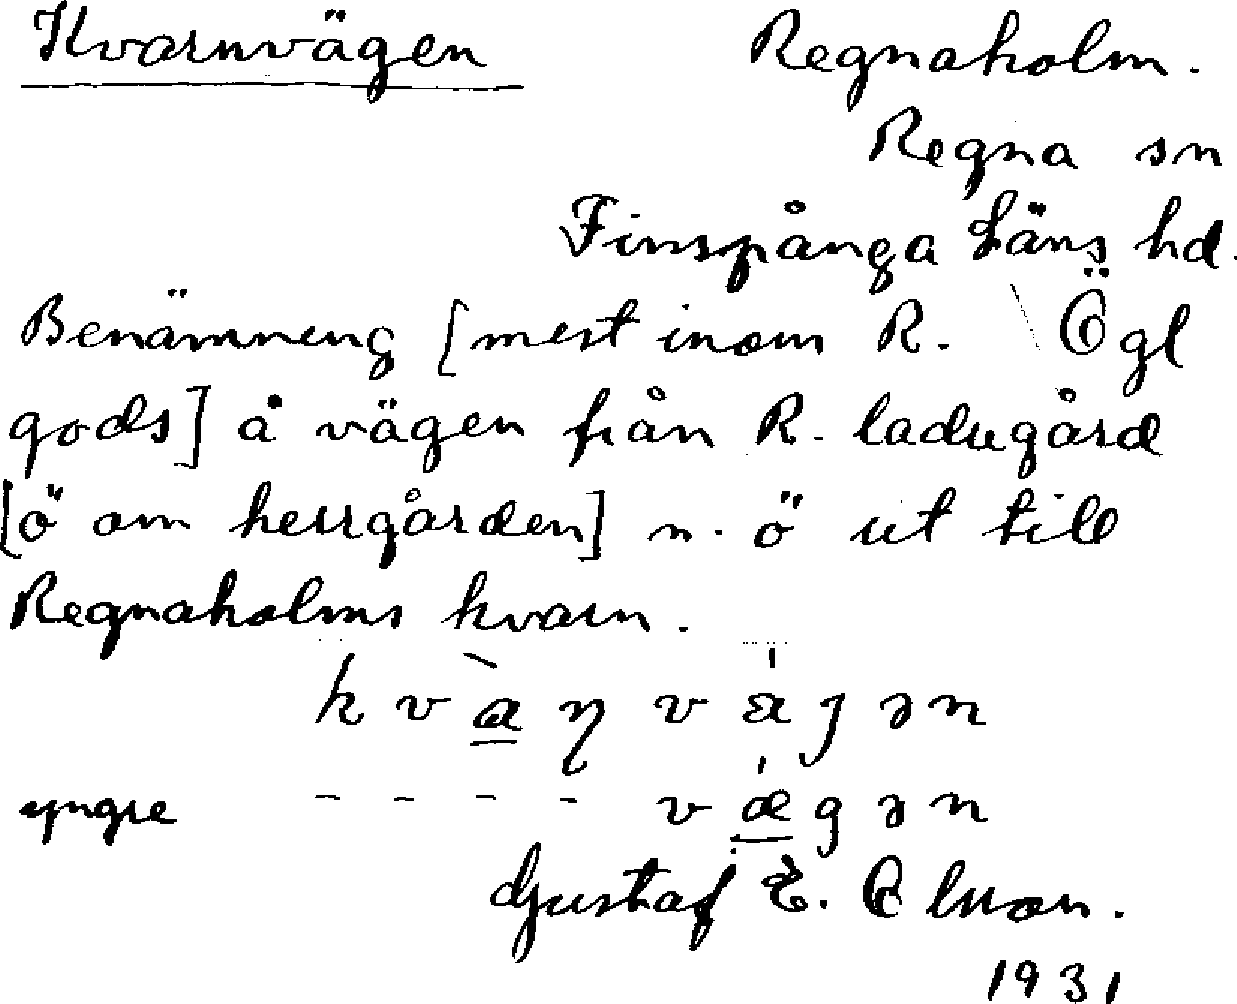 Kvarnvägen Regnaholm.
Regna sn
Finspånga Läns hd.
Benämning [mest inom R. Ögl
gods] å vägen från R. ladugård
[ö om herrgården] n. ö ut till
Regnaholms kvarn.
yngre - - - -
Gustaf E. Olsson.
1931